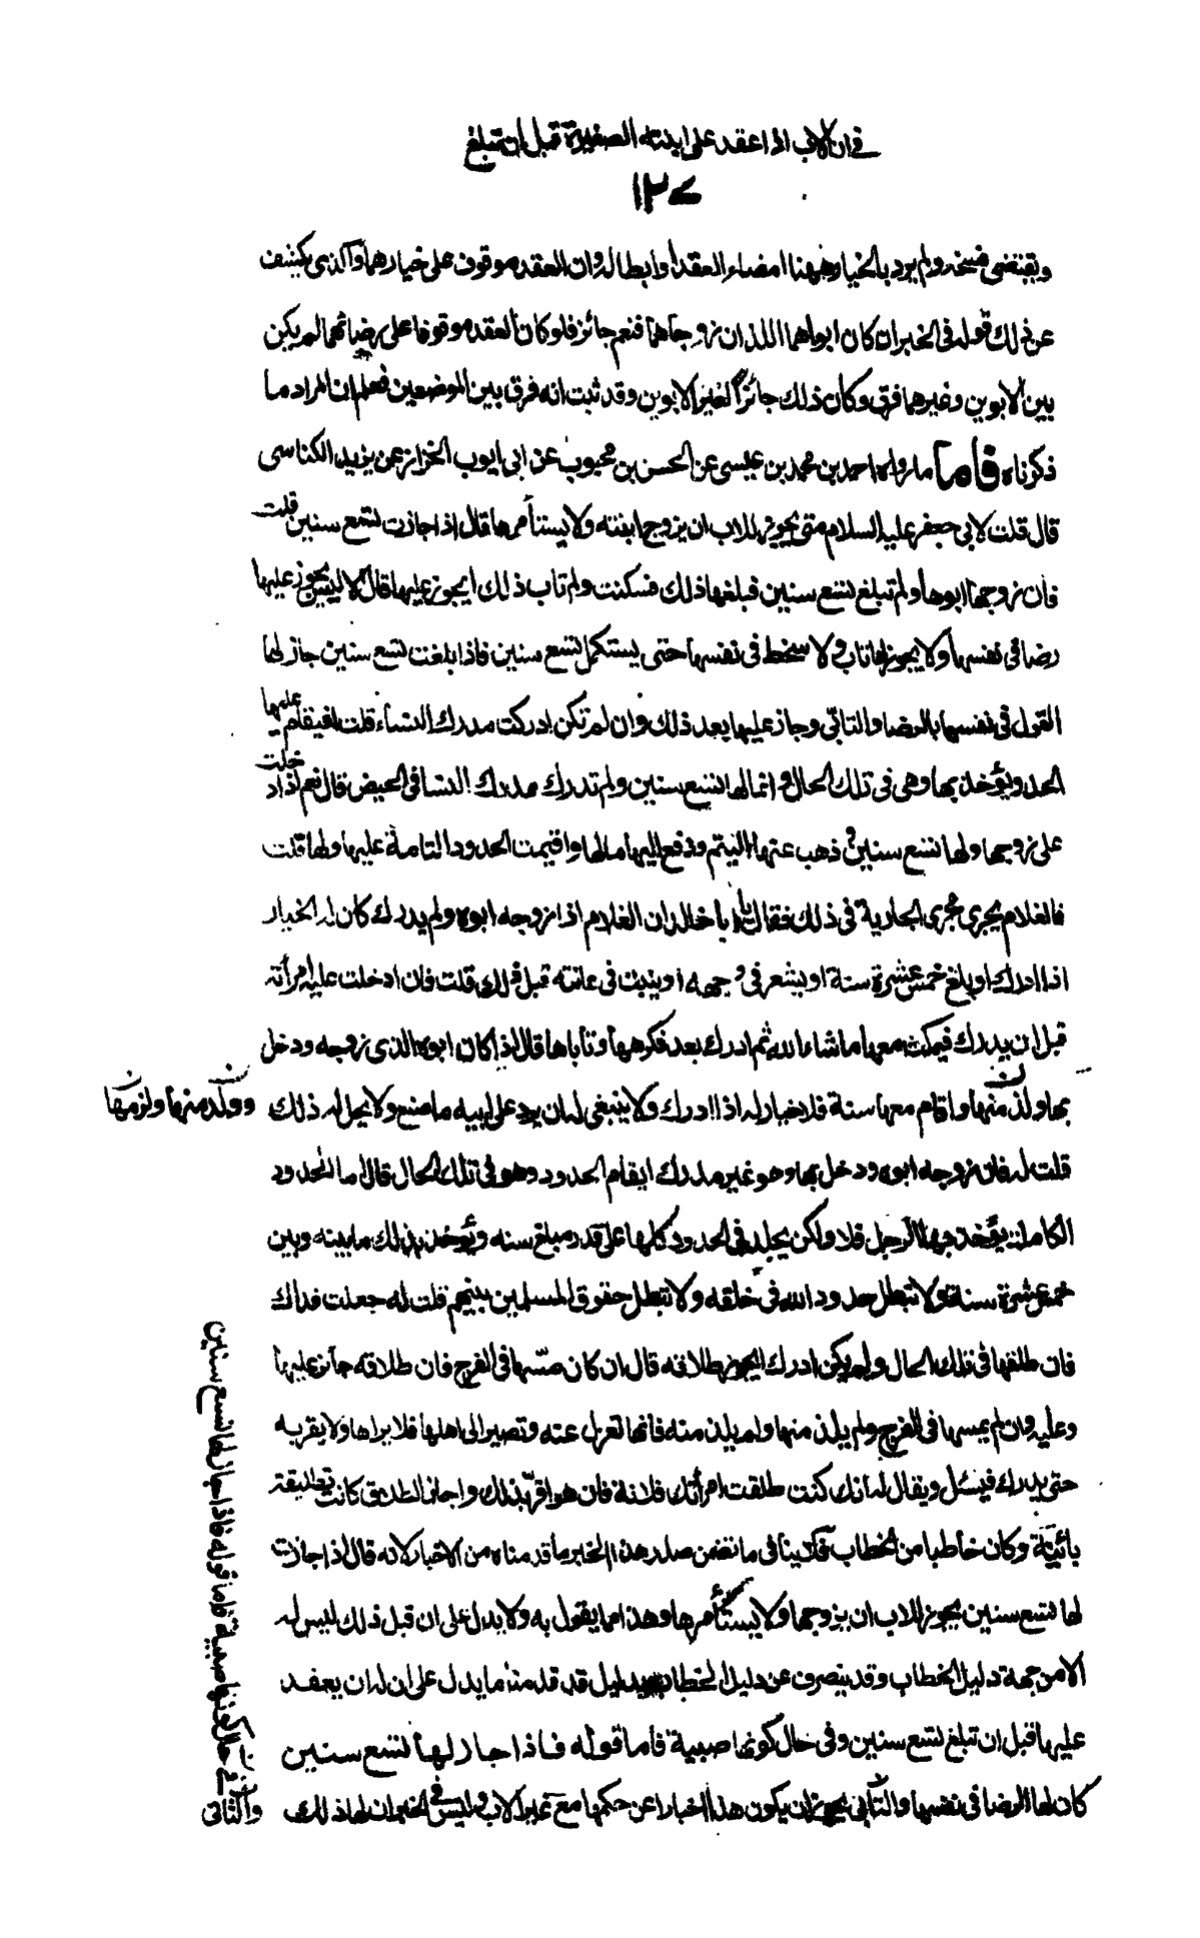 في ان الاب اذا عقد على ابنته الصغيرة قبل ان تبلغ
١٢٧
ويقتضى فسخه ولم يرد بالخيار ههنا امضاء العقد وابطاله وان العقد موقوف على خيارهما والذى يكشف
عن ذلك قوله فى الخبر ان كان ابواهما اللذان زوجاهما فنعم جائز فلو كان العقد موقوفا على رضائهما لم يكن
بين الابوين وغيرهما فرق وكان ذلك جائزا لغير الابوين وقد ثبت انه فرق بين الموضعين فعلم ان المراد ما
ذكرناه فاما ما رواه احمد بن محمد بن عيسى عن الحسن بن محبوب عن ابى ايوب الخزاز عن يزيد الكناسى
قال قلت لابى جعفر عليه السلام متى يجوز للاب ان يزوج ابنته ولا يستأمرها قال اذا جازت تسع سنين قلت
فان زوجها ابوها ولم تبلغ تسع سنين فبلغها ذلك فسكتت ولم تاب ذلك ايجوز عليها قال لا ليس يجوز عليها
رضا فى نفسها ولا يجوز لها تاب ولا سخط فى نفسها حتى يستكمل تسع سنين فاذا بلغت تسع سنين جاز لها
القول فى نفسها بالرضا والتابّى وجاز عليها بعد ذلك وان لم تكن ادركت مدرك النساء قلت افيقام عليها
الحد ويؤخذ بها وهى فى تلك الحال وانما لها تسع سنين ولم تدرك مدرك النسا فى الحيض قال نعم اذا دخلت
على زوجها ولها تسع سنين ذهب عنها اليتم ودفع اليها مالها واقيمت الحدود التامة عليها ولها قلت
فالغلام يجرى مجرى الجارية فى ذلك فقال يا ابا خالد ان الغلام اذا زوجه ابوه ولم يدرك كان له الخيار
اذا ادرك او بلغ خمس عشرة سنة او يشعر فى وجهه او ينبت فى عانته قبل ذلك قلت فان ادخلت عليه امرأته
قبل ان يدرك فيمكث معها ما شاء الله ثم ادرك بعد فكرهها وتأباها قال اذا كان ابوه الذى زوجه ودخل
بها ولذ منها واقام معها سنة فلا خيار له اذا ادرك ولا ينبغى له ان يرد على ابيه ما صنع ولا يحل له ذلك
وولد منها ولزمها
قلت له فان زوجه ابوه ودخل بها وهو غير مدرك ايقام الحدود وهو فى تلك الحال قال اما الحدود
الكاملة يؤخذ بها الرجل فلا ولكن يجلد فى الحدود كلها على قدر مبلغ سنه ويؤخذ بذلك ما بينه وبين
خمس عشرة سنة ولا تبطل حدود الله فى خلقه ولا تبطل حقوق المسلمين بينهم قلت له جعلت فداك
فان طلقها فى تلك الحال ولم يكن ادرك ايجوز طلاقه قال ان كان مسّها فى الفرج فان طلاقه جائز عليها
وعليه وان لم يمسها فى الفرج ولم يلذ منها ولم يلذ منه فانها تعزل عنه وتصير الى اهلها فلا يراها ولا يقربه
حتى يدرك فيسئل ويقال له انك كنت طلقت امرأتك فلانة فان هو اقرّ بذلك واجاز الطلاق كانت تطليقة
بائنة وكان خاطبا من الخطاب فلا ينافى ما تضمن صدر هذا الخبر ما قدمناه من الاخبار لانه قال اذا جازت
لها تسع سنين يجوز للاب ان يزوجها ولا يستأمرها وهذا مما يقول به ولا يدل على ان قبل ذلك ليس له
الا من جهة دليل الخطاب وقد ينصرف عن دليل الخطاب بدليل قد قدمنا ما يدل على ان له ان يعقد
عليها قبل ان تبلغ تسع سنين وفى حال كونها صبية فاما قوله فاذا جاز لها تسع سنين
كان لها الرضا فى نفسها والتأبى يجوز ان يكون هذا اخبارا عن حكمها مع غير الاب وليس فى الخبر ان لها ذلك
فى حال كونها صبية فاما قوله فاذا جاز لها تسع سنين
والتابى